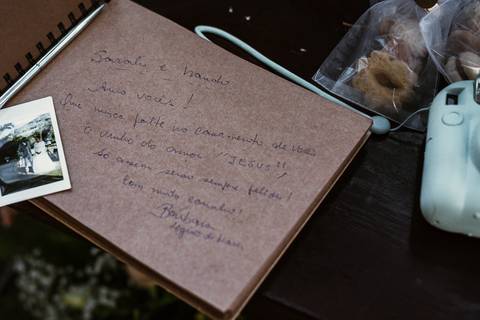 Amo vocês!
Que nunca falte no casamento de vocês
o vinho do amor "JESUS"!!
Só assim serão sempre felizes!
Com muito carinho!!
Barbara